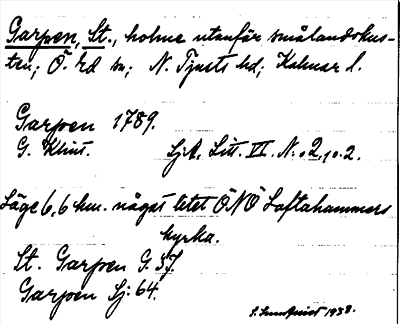 Garpen, St., holme utanför smålandskus-
ten; Ö. Ed sn; N. Tjusts hd; Kalmar l.
Garpen 1789.
G. Klint. Sjk. Litt. VI. N:o 2, p. 2.
Läge 6,6 km. något litet ÖNÖ Loftahammars
kyrka.
St. Garpen G. 37.
Garpen Sj: 64.
S. Sundquist 1938.